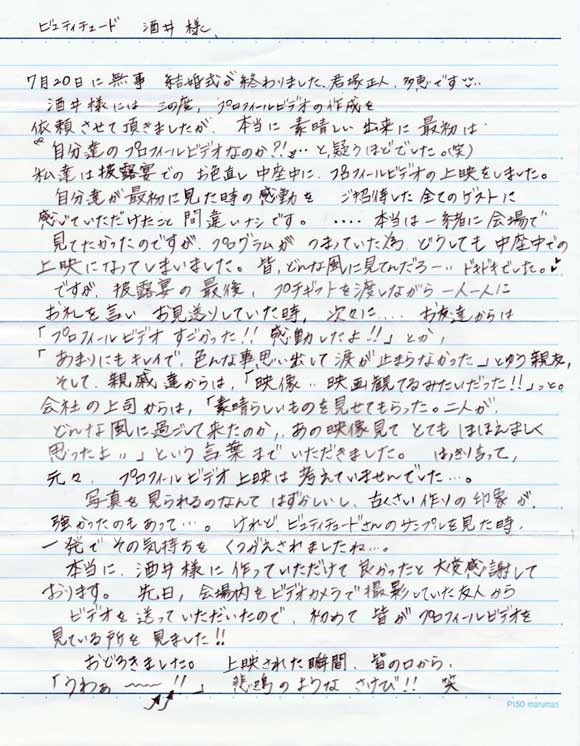 ビュティチュード 酒井 様、
7月20日に無事 結婚式が終わりました、君塚正人、多恵です
酒井様には この度、プロフィールビデオの作成を
依頼させて頂きましたが、本当に 素晴しい 出来に 最初は
"自分達のプロフィールビデオなのか?!"・・と、疑うほどでした。(笑)
私達は披露宴での お色直し 中座中に、プロフィールビデオの上映をしました。
自分達が最初に見た時の感動を ご招待した全てのゲストに
感じていただけたこと 間違いナシです。 ････本当は一緒に会場で
見てたかったのですが、プログラムが つまっていた為、どうしても 中座中での
上映になってしまいました。皆、どんな風に見てんだろー‥ ドキドキでした。
ですが、披露宴の最後、プチギフトを渡しながら 一人一人に
お礼を言い お見送りしていた時、次々に････ お友達からは
「プロフィールビデオ すごかった!! 感動したよ!!」とか、
「あまりにもキレイで、色んな事思い出して涙が止まらなかった」とゆう親友、
そして、親戚達からは、「映像‥映画観てるみたいだった!!」っと。
会社の上司からは、「素晴らしいものを見せてもらった。二人が、
どんな風に過ごして来たのか、あの映像見て とても ほほえましく
思ったよ」という言葉まで いただきました。 はっきり言って、
元々、プロフィールビデオ上映は 考えていませんでした…。
写真を見られるのなんて はずかしいし、古くさい作りの印象が、
強かったのもあって…。けれど、ビュティチュードさんのサンプルを見た時、
一発で その気持ちを くつがえされましたね…。
本当に、酒井様に 作っていただけて 良かったと 大変感謝して
おります。 先日、会場内をビデオカメラで撮影していた友人から
ビデオを 送っていただいたので、初めて 皆が プロフィールビデオを
見ている所を 見ました!!
おどろきました。 上映された瞬間、皆の口から、
「うわぁ〜〜!!」 悲鳴のような さけび!! 笑
P150 maruman